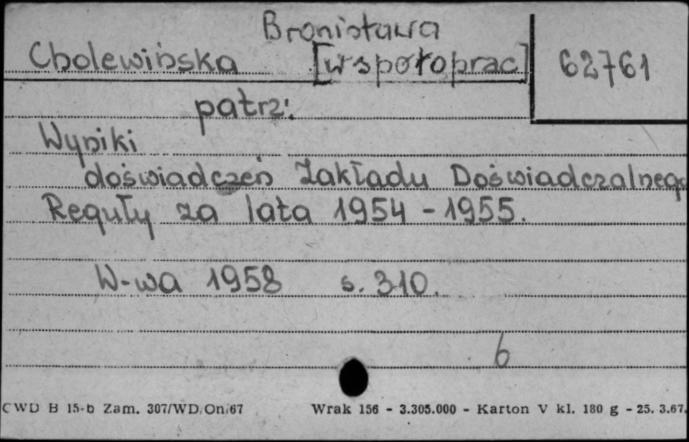 Bronisława
Cholewińska [współoprac] 62761
patrz:
Wyniki
doświadczeń Zakładu Doświadczalnego
Reguły za lata 1954 - 1955.
W-wa 1958 s. 310.
6
CWD B 15-b Zam. 307/WD/On/67 Wrak 156 - 3.305.000 - Karton V kl. 180 g - 25. 3.67.